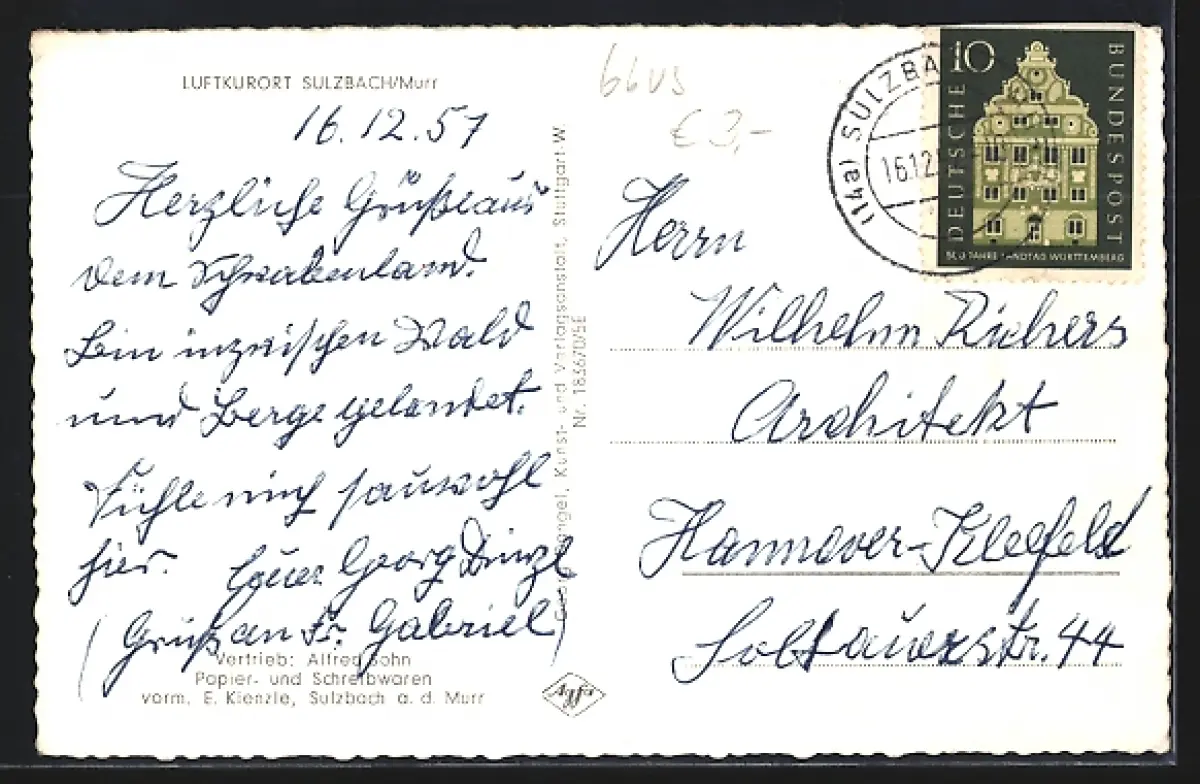 LUFTKURORT SULZBACH/Murr
16.12.57
Herzliche Grüße aus
dem Schwabenland.
Bin inzwischen Wald
und Berge gelandet.
Fühle mich sauwohl
hier. Euer Georg
(Gruß an Fr. Gabriel)
Vertrieb: Alfred Sohn
Papier- und Schreibwaren
vorm. E. Kienzle, Sulzbach a. d. Murr
Kunst- und Verlagsanstalt, Stuttgart-W.
Nr. 183670/5E
Agfa
66VS
€ 3,-
(14a) SULZBA
16.12.5
10
DEUTSCHE
BUNDESPOST
JAHRE LANDTAG WÜRTTEMBERG
Herrn
Wilhelm Richers
Architekt
Hannover-Kleefeld
Soltauerstr. 44